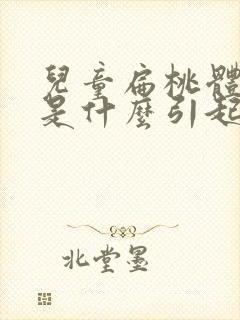 兒童扁桃體
是什麼引起
北堂墨